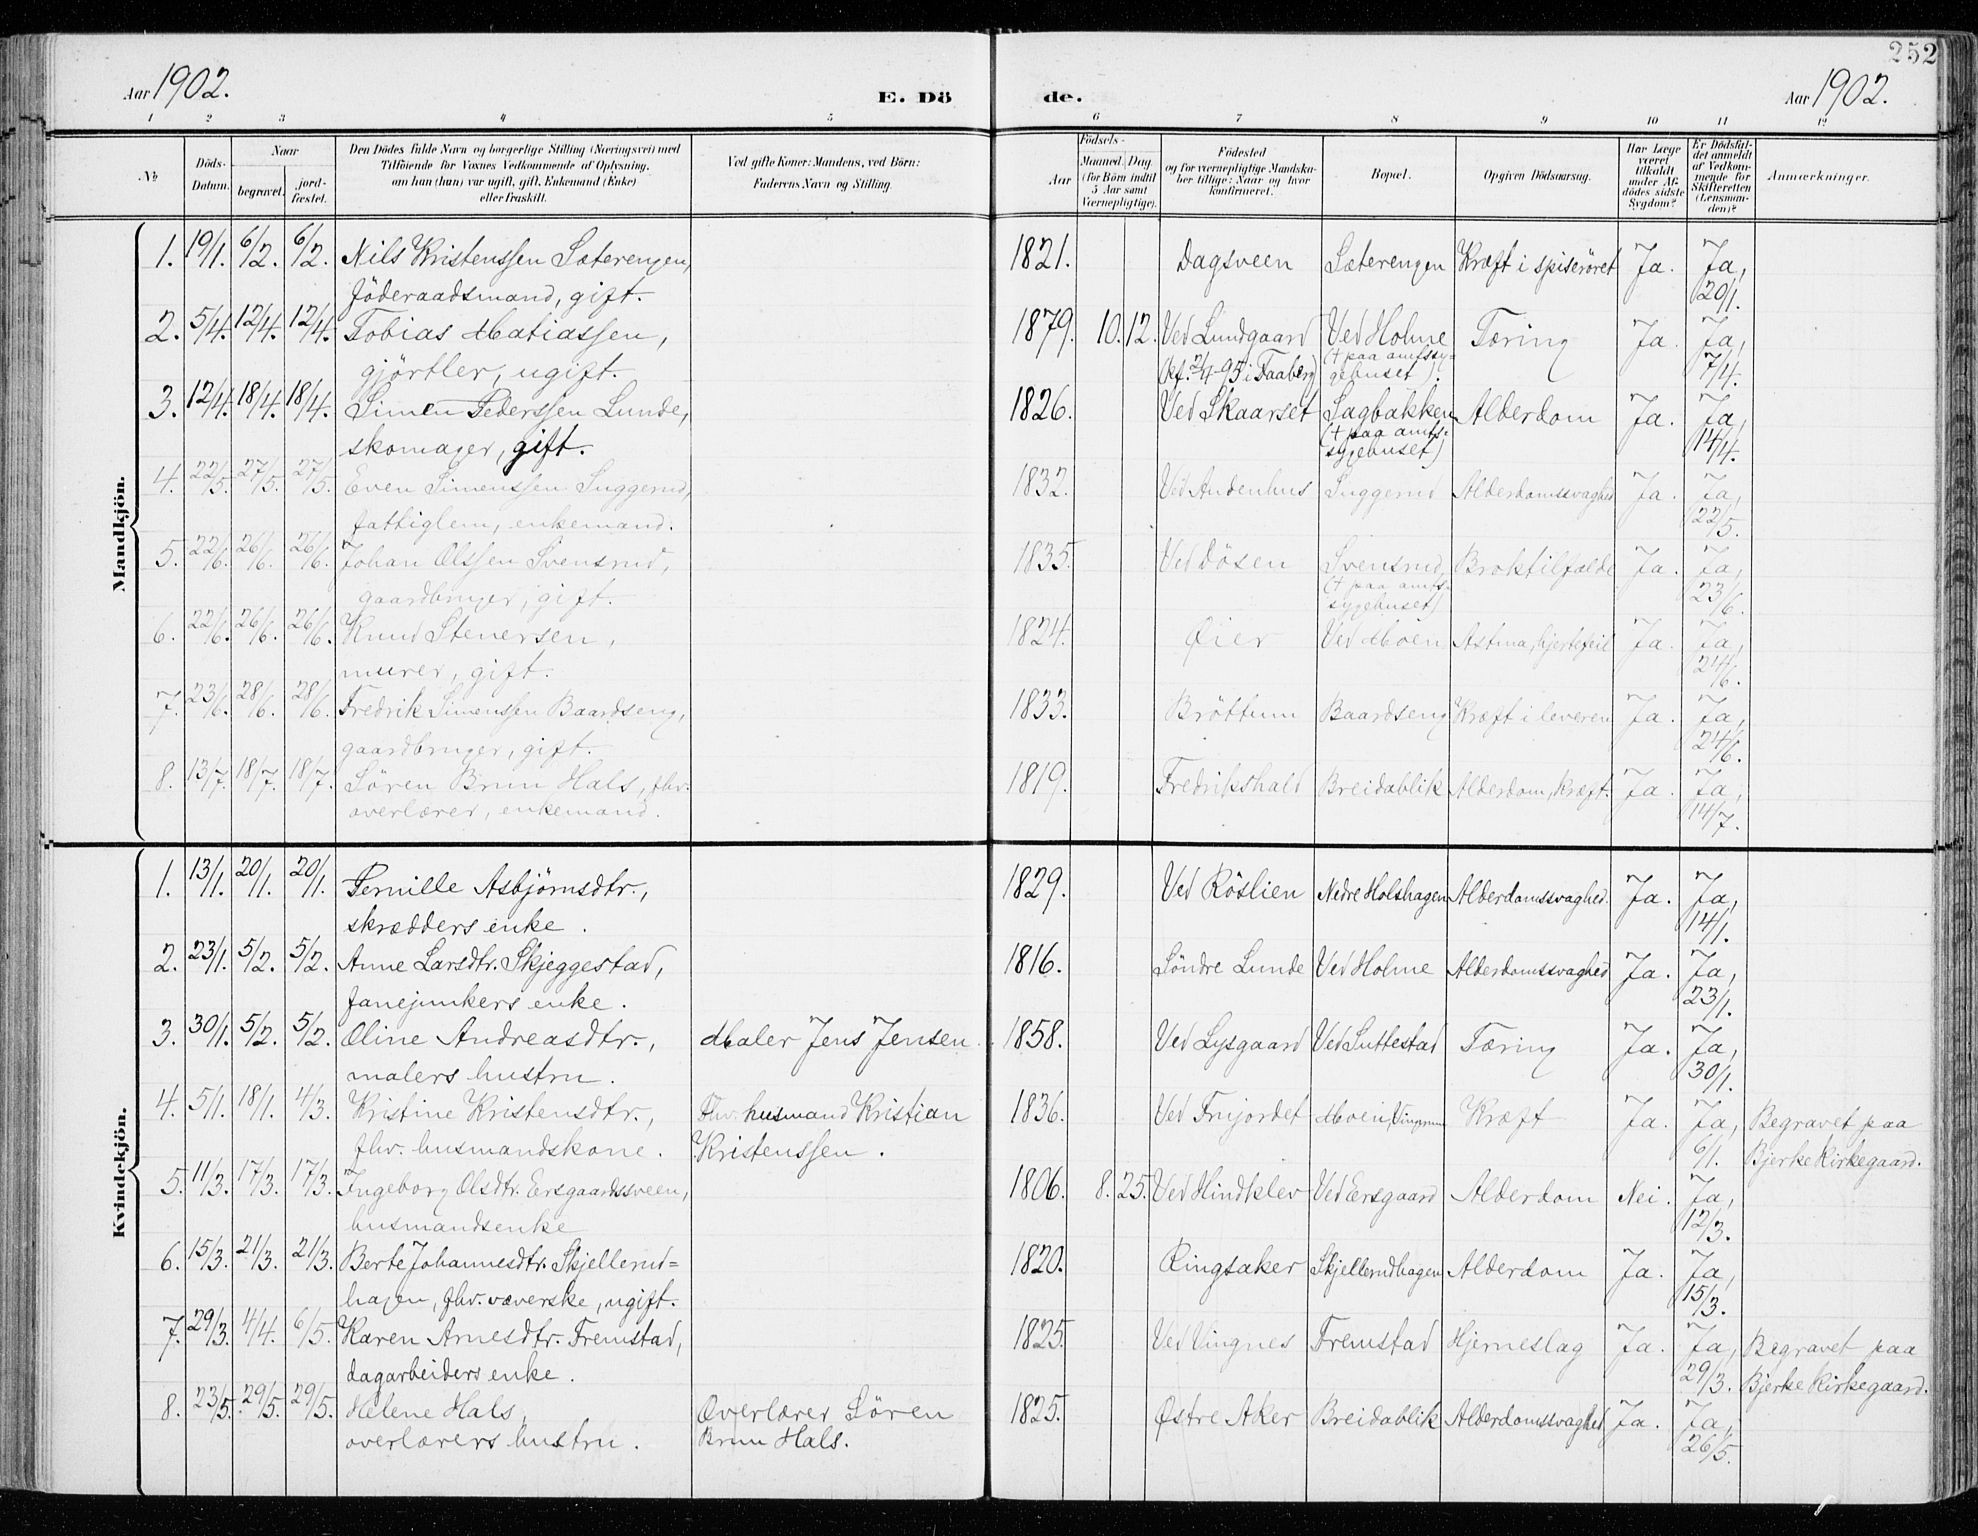 252
Aar 1902. E. Dö de. Aar 1902.
1 2 3 4 5 6 7 8 9 10 11 12
№
Döds-Datum.
Naar
begravet.
jord-fæstet.
Den Dödes fulde Navn og borgerlige Stilling (Næringsvei) med
Tilföiende for Voxnes Vedkommende af Oplysning,
om han (hun) var ugift, gift, Enkemand (Enke)
eller fraskilt.
Ved gifte Koner: Mandens, ved Börn:
Faderens Navn og Stilling.
Födsels-
Aar
Maaned. Dag.
(for Börn indtil
5 Aar samt
Værnepligtige).
Födested
og for værnepligtige Mandska-
ber tillige: Naar og hvor
konfirmeret.
Bopæl.
Opgiven Dödsaarsag.
Har Læge
været
tilkaldt
under Af-
dödes sidste
Sygdom?
Er Dödsfal-
det anmeldt
af Vedkom-
mende for
Skifteretten
(Lensman-
den)?
Anmærkninger.
Mandkjön.
1. 19/1. 6/2. 6/2. Nils Kristenssen Sæterengen, 1821. Dagsveen Sæterengen Kræft i spiserøret Ja. Ja,
föderaadsmand, gift. 20/1.
2. 5/4. 12/4. 12/4. Tobias Matiassen, 1879. 10. 12. Ved Lundgaard Ved Holme Tæring Ja. Ja,
gjörtler, ugift. (kf. 21/4-95 i Faaberg) (+ paa amtssy-gehuset). 7/4.
3. 12/4. 18/4. 18/4. Simen Pederssen Lunde, 1826. Ved Skaarset Sagbakken Alderdom Ja. Ja,
skomager, gift. (+ paa amts-sygehuset) 14/4.
4. 22/5. 27/5. 27/5. Even Simenssen Suggerud, 1832. Ved Audenhus Suggerud Alderdomssvaghed Ja. Ja,
fattiglem, enkemand. 22/5.
5. 22/6. 26/6. 26/6. Johan Olssen Svensrud, 1835. Ved Døsen Svensrud, Broktilfælde Ja. Ja,
gaardbruger, gift. (+ paa amts-sygehuset) 23/6.
6. 22/6. 26/6. 26/6. Knud Stenersen, 1824. Øier Ved Moen Astma, hjertefeil Ja. Ja,
murer, gift. 24/6.
7. 23/6. 28/6. 28/6. Fredrik Simenssen Baardseng, 1833. Bröttum Baardseng Kræft i leveren Ja. Ja,
gaardbruger, gift. 24/6.
8. 13/7. 18/7. 18/7. Sören Brun Hals, fhv. 1819. Fredrikshald Breidablik Alderdom, kræft. Ja. Ja,
overlærer, enkemand. 14/7.
Kvindekjön.
1. 13/1. 20/1. 20/1. Pernille Asbjörnsdtr., 1829. Ved Röslien Nedre Holshagen Alderdomssvaghed. Ja. Ja,
skrædders enke. 14/1.
2. 23/1. 5/2. 5/2. Anne Larsdtr. Skjeggestad, 1816. Söndre Lunde Ved Holme Alderdomssvaghed Ja. Ja,
fanejunkers enke. 23/1.
3. 30/1. 5/2. 5/2. Oline Andreasdtr., Maler Jens Jensen 1858. Ved Lysgaard Ved Suttestad Tæring Ja. Ja,
malers hustru. 30/1.
4. 5/1. 18/1. 4/3. Kristine Kristensdtr., Fhv. husmand Kristian 1836. Ved Moen, Kræft Ja. Ja, Begravet paa
fhv. husmandskone. Kristenssen. 6/1. Bjerke Kirkegaard.
5. 11/3. 17/3. 17/3. Ingeborg Olsdtr. Ersgaardssveen, 1806. 8. 25. Ved Hindklev Ved Ersgaard Alderdom Nei. Ja,
husmandsenke 12/3.
6. 15/3. 21/3. 21/3. Berte Johannesdtr. Skjellerud= 1820. Ringsaker Skjellerudhagen Alderdom Ja. Ja,
hagen, fhv. væverske, ugift. 15/3.
7. 29/3. 4/4. 6/5. Karen Arnesdtr. Fremstad, 1825. Ved Vingnes Fremstad Hjerneslag Ja. Ja, Begravet paa
dagarbeiders enke. 29/3. Bjerke Kirkegaard.
8. 23/5. 29/5. 29/5. Helene Hals, Overlærer Sören 1825. Østre Aker Breidablik Alderdomssvaghed Ja. Ja,
overlærers hustru. Brun Hals. 26/5.